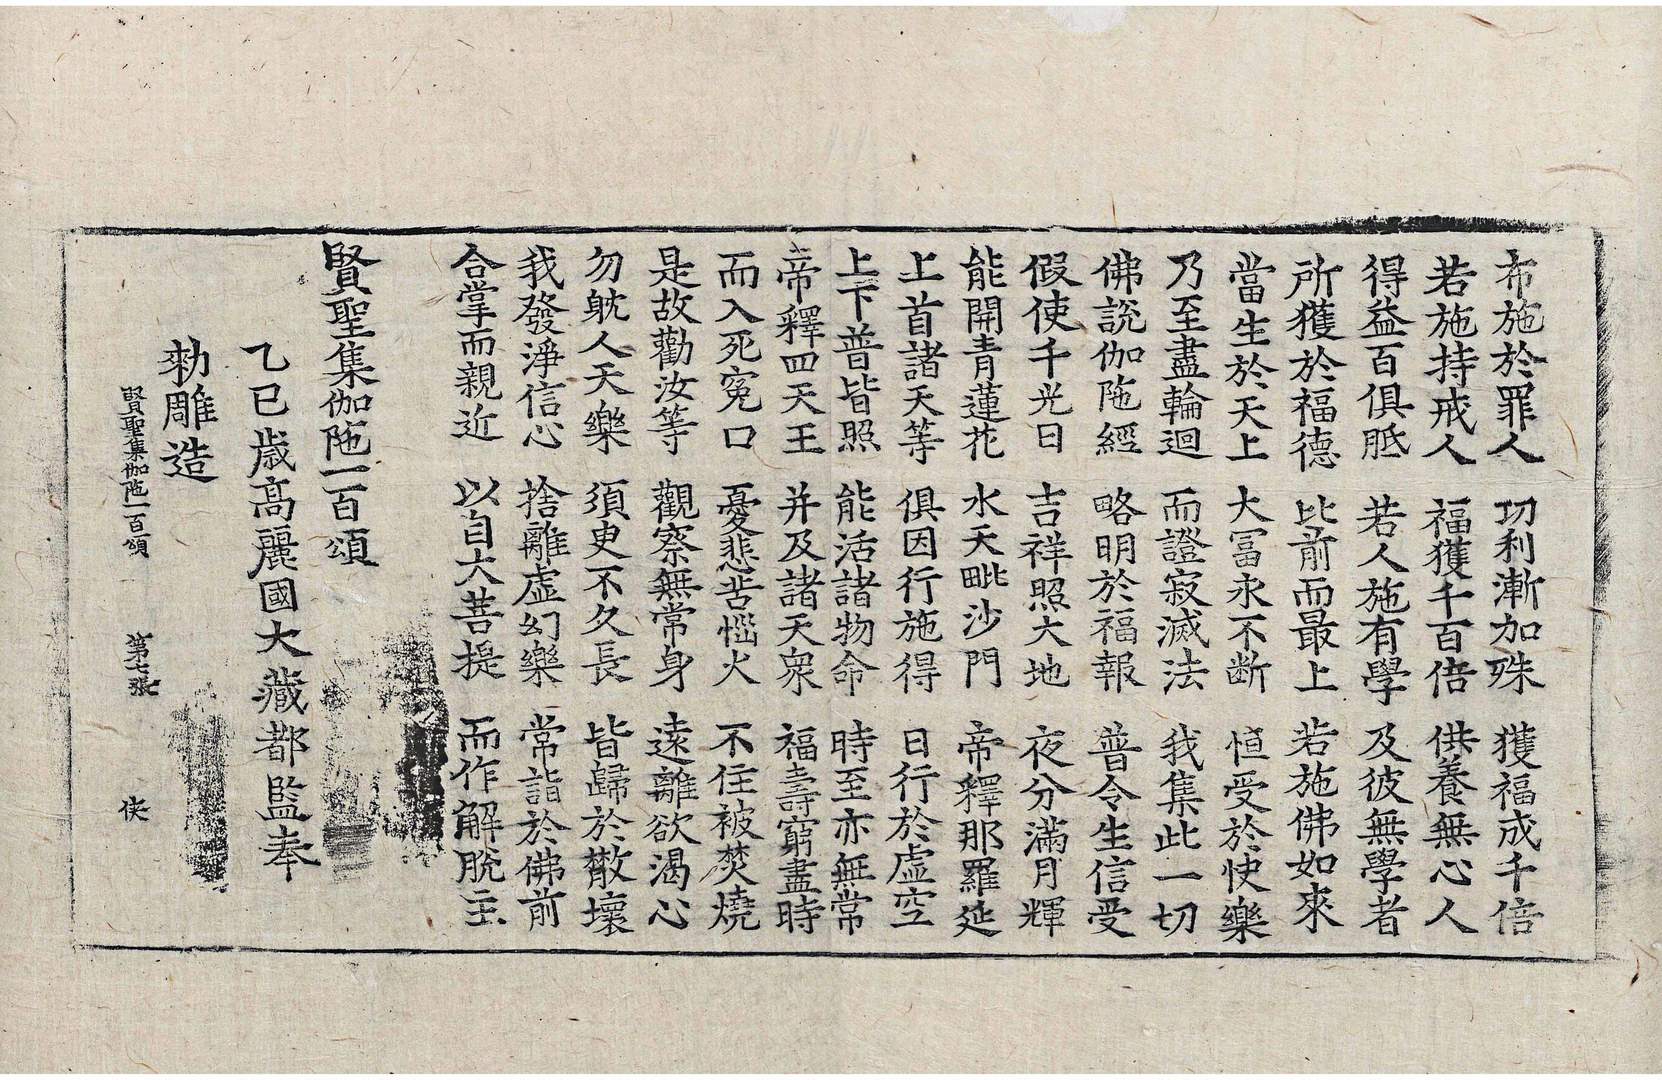 布施於罪人 功利漸加殊 獲福成千倍
若施持戒人 福獲千百倍 供養無心人
得益百俱胝 若人施有學 及彼無學者
所獲於福德 比前而最上 若施佛如來
當生於天上 大冨永不断 恒受於快樂
乃至盡輪迴 而證寂滅法 我集此一切
佛説伽陁經 略明於福報 普令生信受
假使千光日 吉祥照大地 夜分滿月輝
能開青蓮花 水天毗沙門 帝釋那羅延
上首諸天等 俱因行施得 日行於虛空
上下普皆照 能活諸物命 時至亦無常
帝釋四天王 并及諸天衆 福壽窮盡時
而入死寃口 憂悲苦惱火 不住被焚燒
是故勸汝等 觀察無常身 遠離欲渴心
勿躭人天樂 須臾不久長 皆歸於散壞
我發淨信心 捨離虛幻樂 常詣於佛前
合掌而親近 以自大菩提 而作解脫主
賢聖集伽陁一百頌
乙巳歲高麗國大藏都監奉
勑雕造
賢聖集伽陁一百頌 第七張 俠